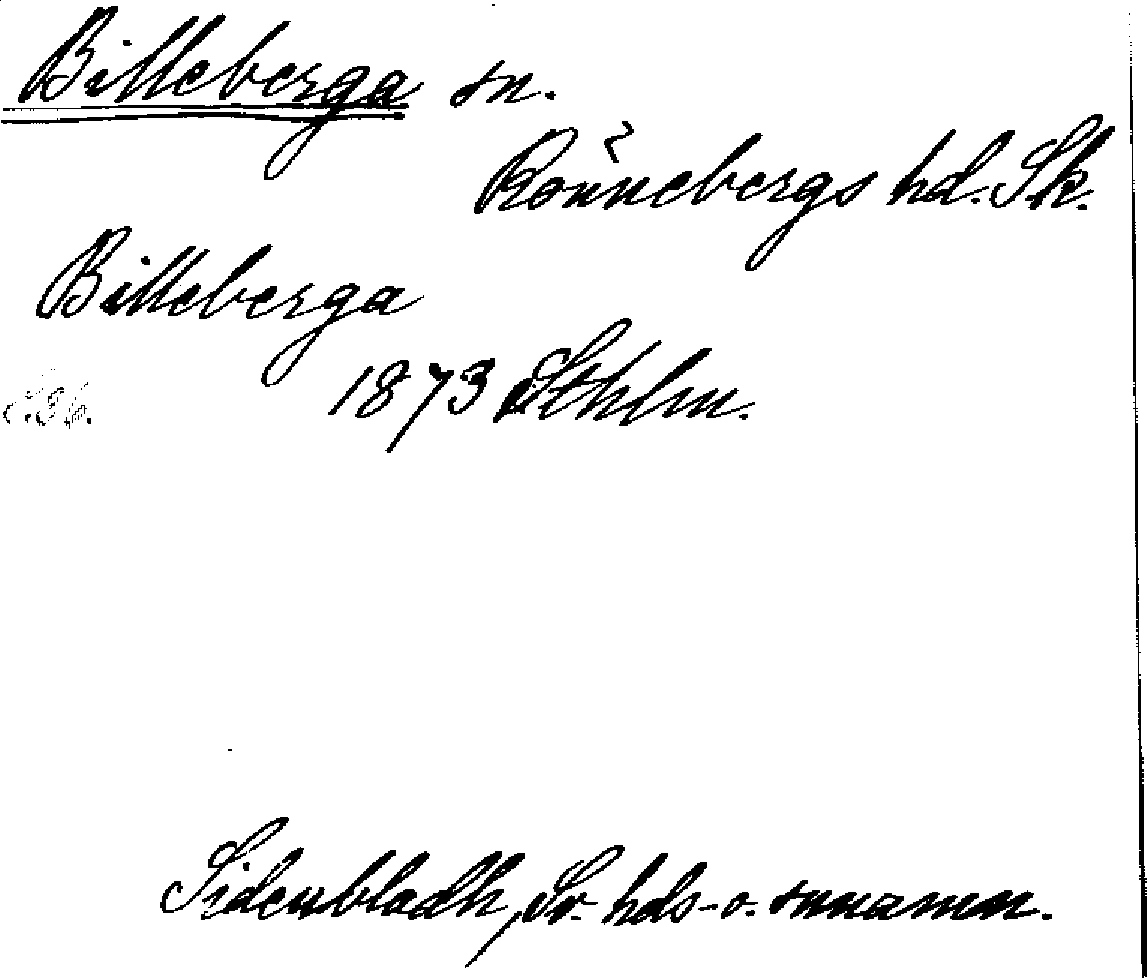 Billeberga sn.
Rönnebergs hd. Sk.
Billeberga
1873 Sthlm.
Sidenbladh, Sv. hds- o. snnamn.